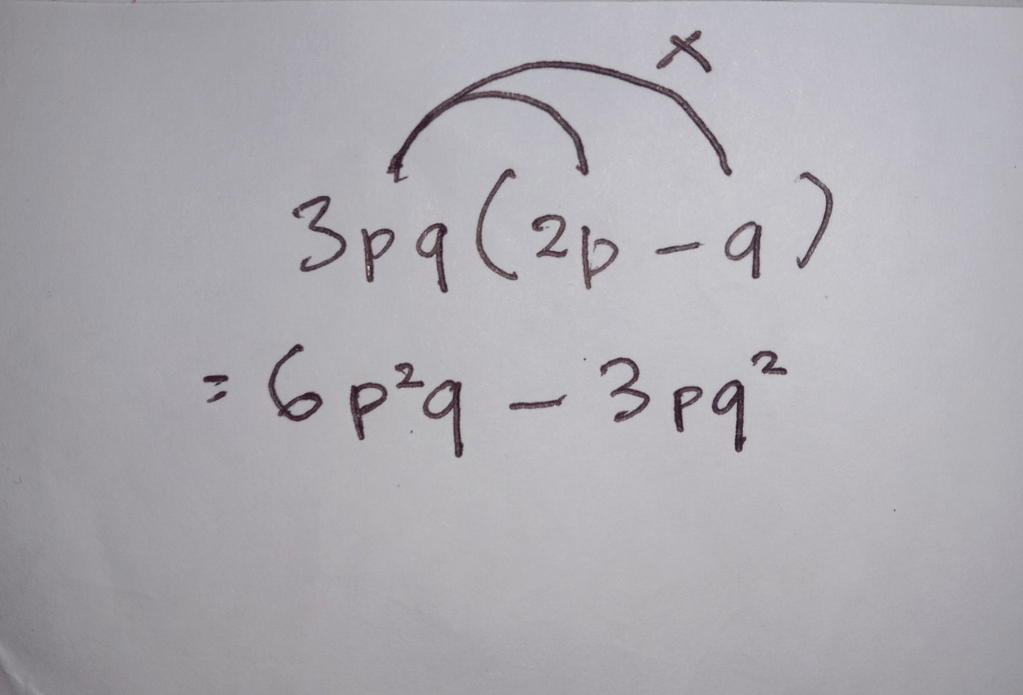 ×
3pq(2p - q)
= 6p²q - 3pq²